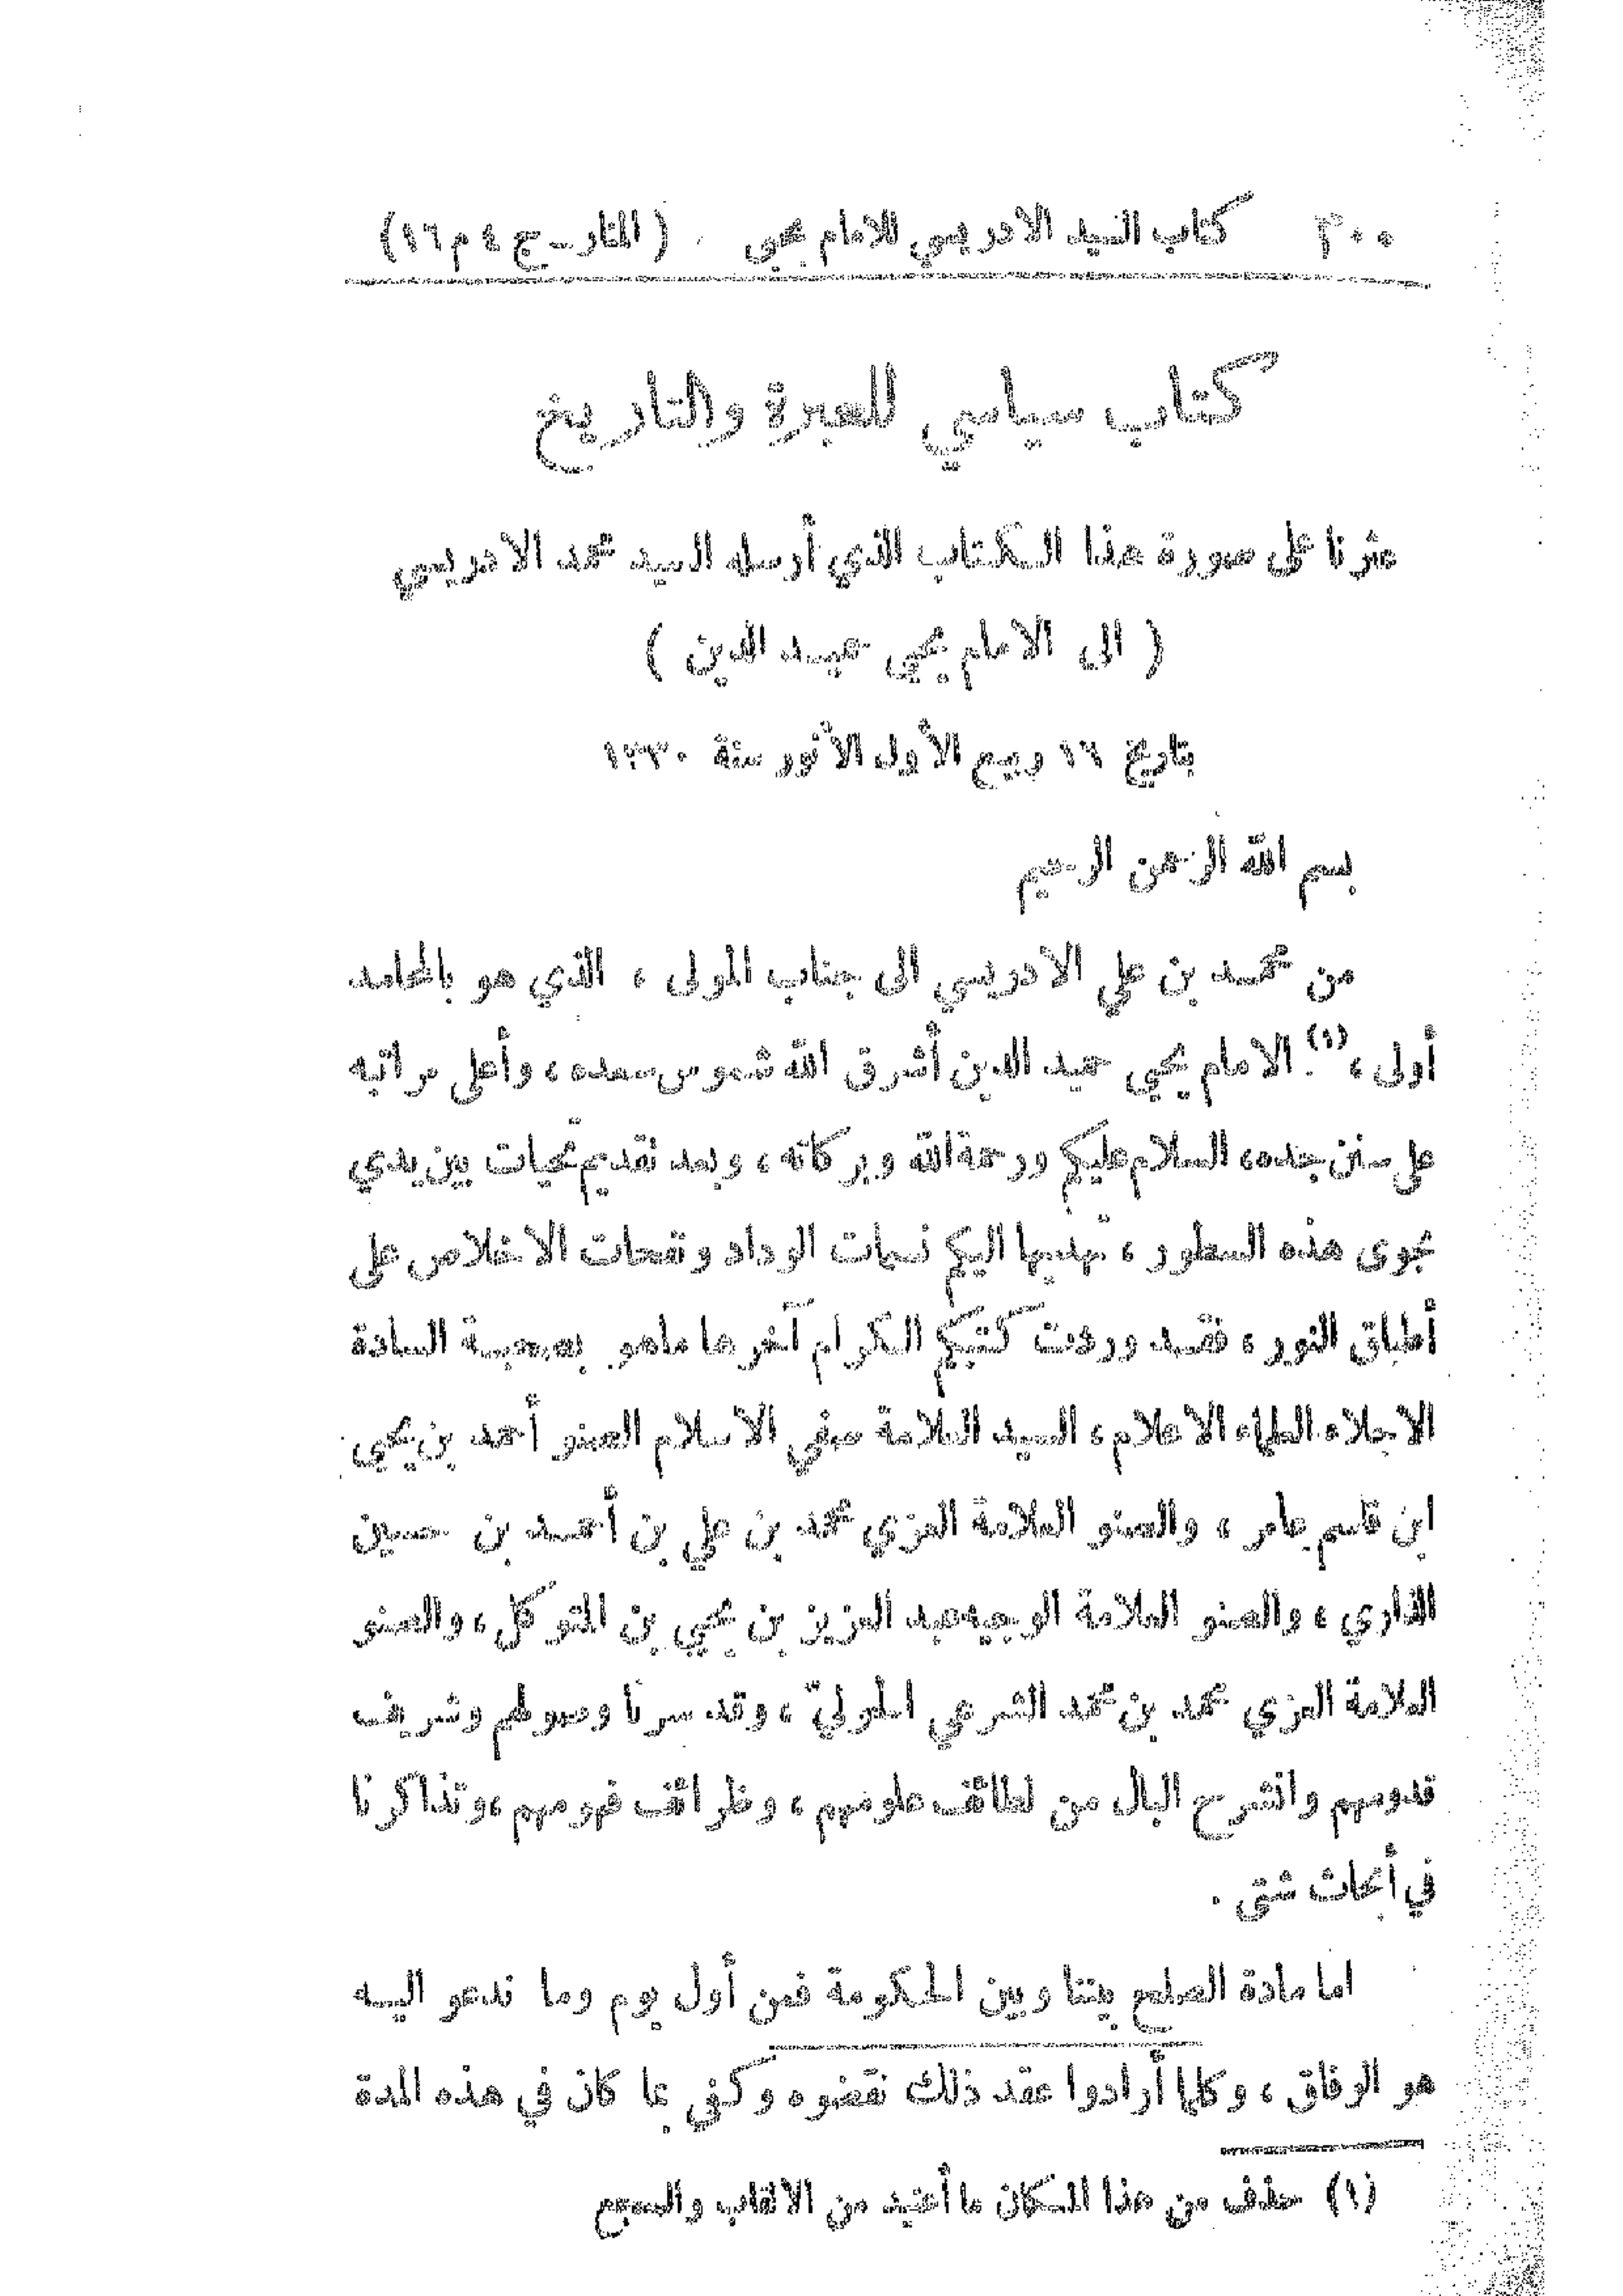 ٣٠٠ كتاب السيد الادريسي للامام يحيى (المنار - ج ٤ م ١٦)
كتاب سياسي للعبرة والتاريخ
عثرنا على صورة هذا الكتاب الذي أرسله السيد محمد الادريسي
( الى الامام يحيى حميد الدين )
بتاريخ ١٦ ربيع الأول الأنور سنة ١٣٣٠
بسم الله الرحمن الرحيم
من محمد بن علي الادريسي الى جناب المولى ، الذي هو بالمحامد
أولى ،(١) الامام يحيى حميد الدين أشرق الله شموس سعده ، وأعلى مراتبه
على سنن جده، السلام عليكم ورحمة الله وبركاته ، وبعد تقديم تحيات بين يدي
نجوى هذه السطور ، تهديها اليكم نسمات الوداد ونفحات الاخلاص على
أطباق النور ، فقد وردت كتبكم الكرام آخرها ماهو بصحبة السادة
الاجلاء العلماء الاعلام ، السيد العلامة صفي الاسلام الصنو أحمد بن يحيى
ابن قاسم عامر ، والصنو العلامة العزي محمد بن علي بن أحمد بن حسين
الذاري ، والصنو العلامة الوجيه عبد العزيز بن يحيى بن المتوكل ، والصنو
العلامة العزي محمد بن محمد الشرعي الحولي ، وقد سرنا وصولهم وشريف
قدومهم وانشرح البال من لطائف علومهم ، وظرائف فهومهم ، وتذاكرنا
في أبحاث شتى .
اما مادة الصلح بيننا وبين الحكومة فمن أول يوم وما ندعو اليه
هو الوفاق ، وكلما أرادوا عقد ذلك نقضوه وكفى بما كان في هذه المدة
(١) حذف من هذا المكان ما أعتيد من الالقاب والسجع